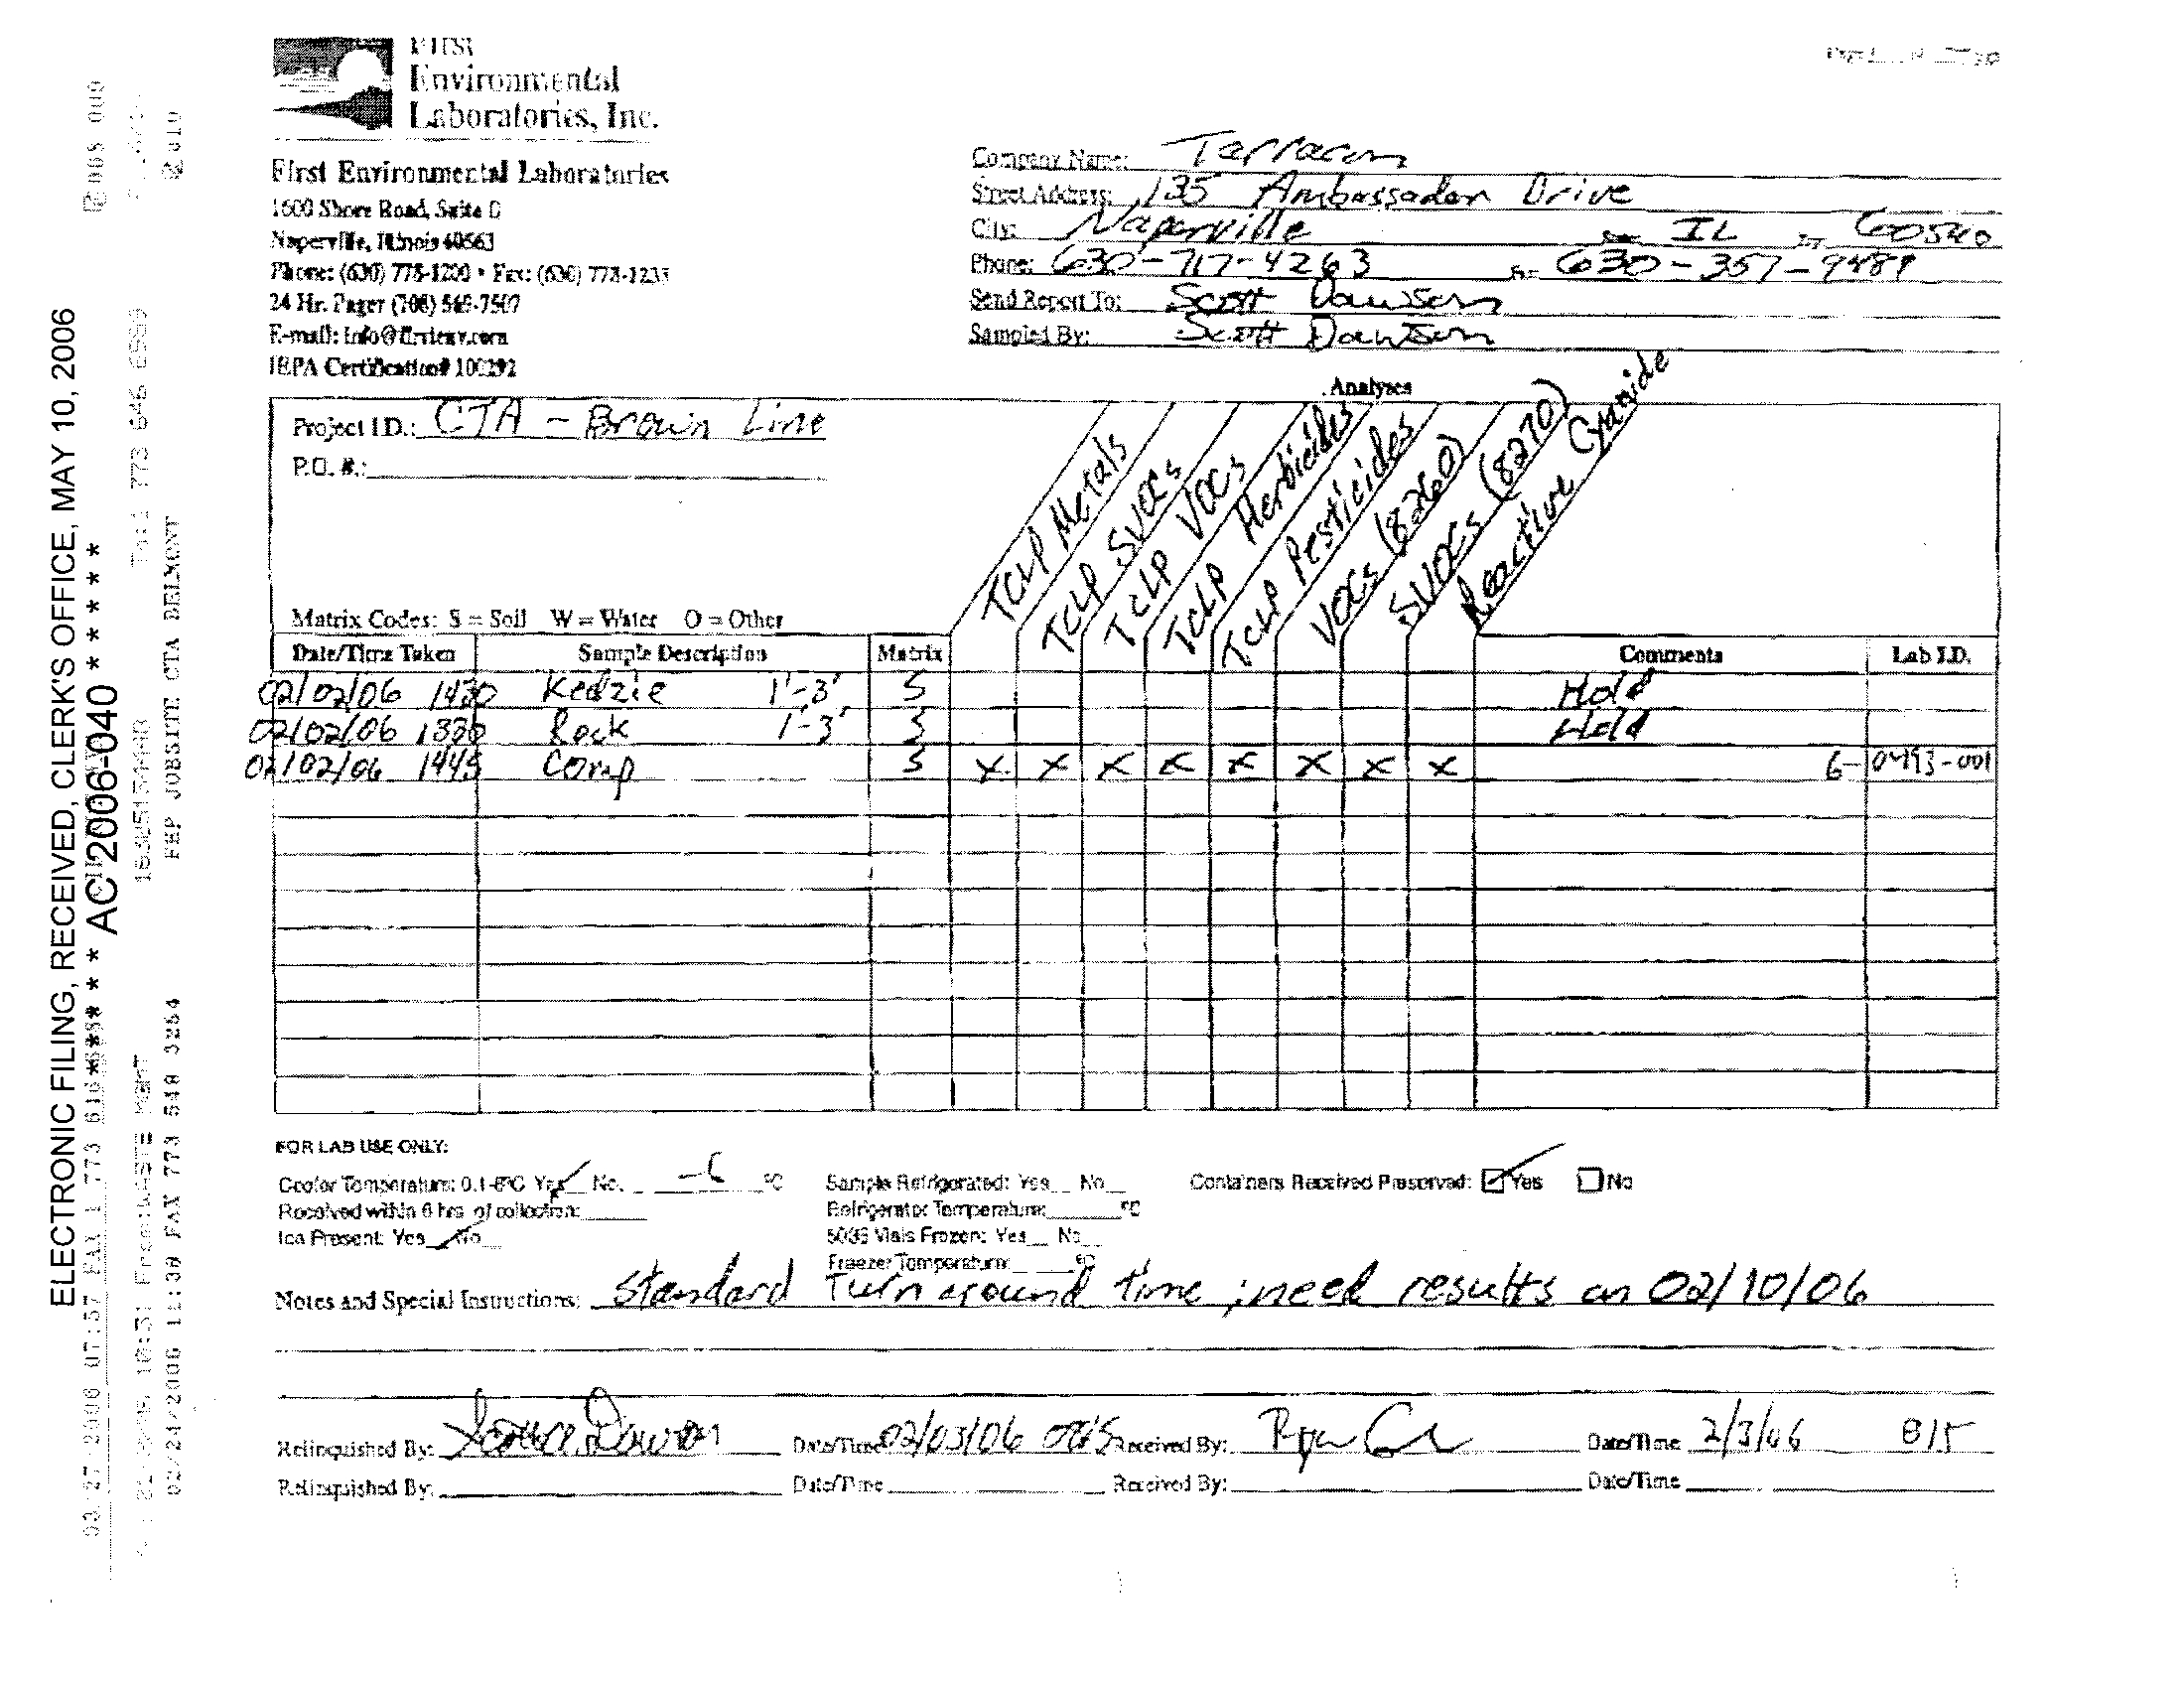 First
Environmental
Laboratories, Inc.
First Environmental Laboratories
1600 Shore Road, Suite D
Naperville, Illinois 60563
Phone: (630) 778-1200 • Fax: (630) 778-1233
24 Hr. Pager (708) 569-7507
E-mail: info@firstenv.com
IEPA Certification# 100292
Company Name: Terracon
Street Address: 135 Ambassador Drive
City: Naperville IL 60540
Phone: 630-717-4263 630-357-9489
Send Report To: Scott Dawson
Sampled By: Scott Dawson
Analyses
Project I.D.: CTA - Brown Line
P.O. #.:
TCLP Metals
TCLP SVOCs
TCLP VOCs
TCLP Herbicides
TCLP Pesticides
VOCs (8260)
SVOCs (8270)
Reactive Cyanide
Matrix Codes: S = Soil W = Water O = Other
Date/Time Taken Sample Description Matrix Comments Lab I.D.
02/02/06 1430 Kedzie 1'-3' S Hold
02/02/06 1330 Rock 1-3' S Hold
02/02/06 1445 Comp S X X X X X X X X 6-0493-001
FOR LAB USE ONLY:
Cooler Temperature: 0.1-6°C Yes No °C Sample Refrigerated: Yes No Containers Received Preserved: Yes No
Received within 6 hrs. of collection: Refrigerator Temperature: °C
Ice Present: Yes No 5035 Vials Frozen: Yes No
Freezer Temperature: °C
Notes and Special Instructions: Standard Turn around time ; need results on 02/10/06
Relinquished By: Date/Time 02/03/06 0815 Received By: Date/Time 2/3/06 815
Relinquished By: Date/Time Received By: Date/Time
ELECTRONIC FILING, RECEIVED, CLERK'S OFFICE, MAY 10, 2006
* * * * * AC 2006-040 * * * * *
02/24/2006 11:30 FAX 773 548 3254 FHP JOBSITE CTA BELMONT 010